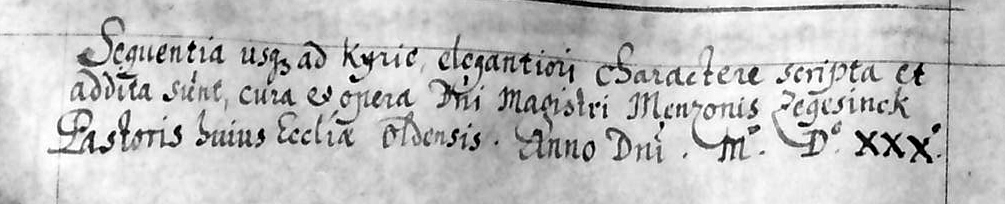 Sequentia usqꝫ ad Kyrie, elegantiorj charactere scripta et
addita sunt, cura et opera Dnj Magistri Menzonis Zegesinck
Pastoris huius Eccliæ Oldensis. Anno Dnj. M°. D°. XXX°.